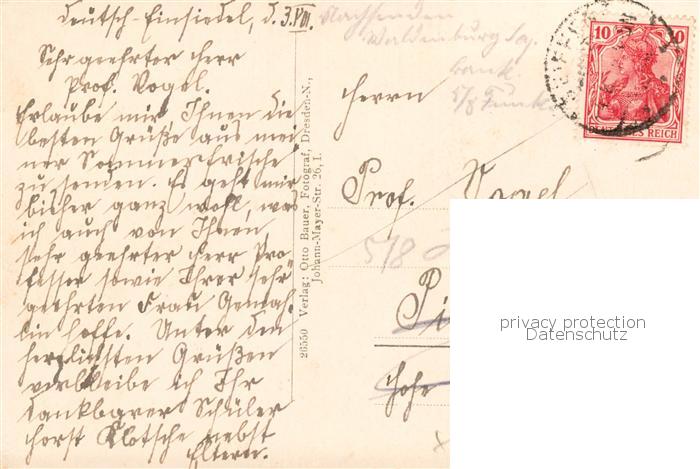 Deutsch-Einsiedel, d. 3.VIII.
Sehr geehrter Herr
Prof. Vogel.
Erlaube mir, Ihnen die
besten Grüße aus mei
ner Sommerfrische
zu senden. Es geht mir
bisher ganz wohl, was
ich auch von Ihnen,
sehr geehrter Herr Pro-
fessor sowie Ihrer sehr
geehrten Frau Gemah
lin hoffe. Unter den
herzlichsten Grüßen
verbleibe ich Ihr
dankbarer Schüler
Horst Klotsche nebst
Eltern.
26550 Verlag: Otto Bauer, Fotograf, Dresden-N.,
Johann-Mayer-Str. 26, I.
Nachsenden
Waldenburg Sa.
5/8 Funk
Herrn
Prof. Vogel
5/8
Hohe
10 10
DEUTSCHES REICH
privacy protection
Datenschutz